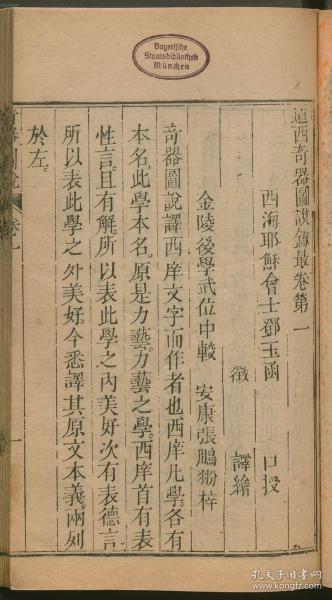 Bayerische
Staatsbibliothek
München
遠西奇器圖說錄最卷第一
西海耶穌會士鄧玉函 口授
徵 譯繪
金陵後學武位中較 安康張鵬翂梓
奇器圖說譯西庠文字而作者也西庠凡學各有
本名此學本名原是力藝力藝之學西庠首有表
性言且有解所以表此學之內美好次有表德言
所以表此學之外美好今悉譯其原文本義兩列
於左
卷一
一
孔夫子旧书网